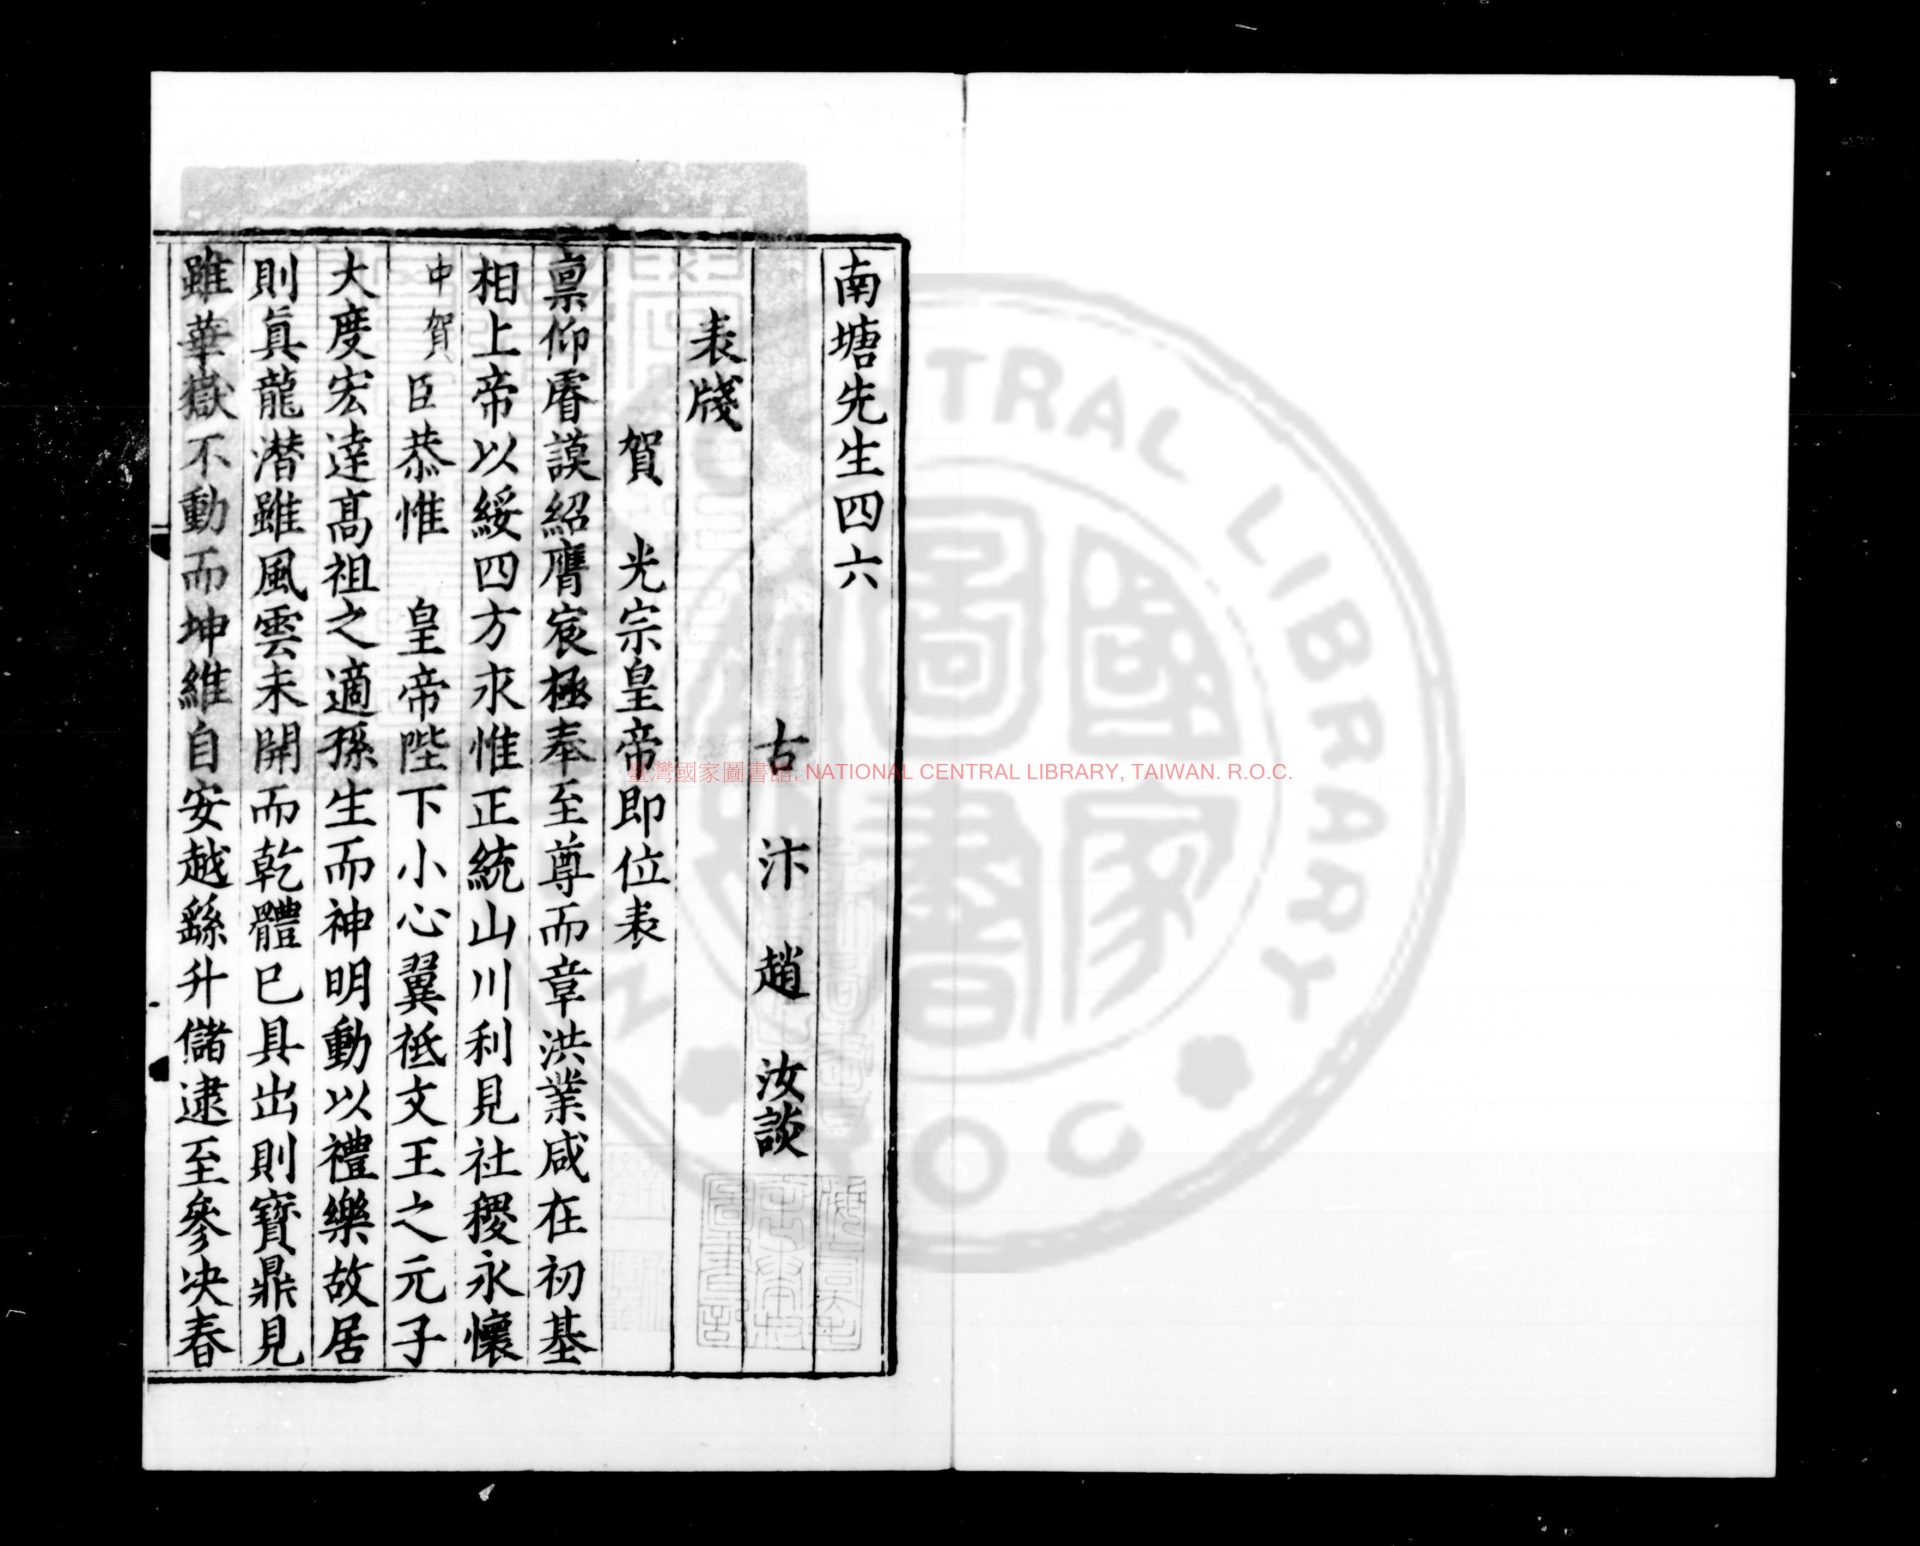 南塘先生四六
古汴趙汝談
表牋
賀　光宗皇帝即位表
禀仰睿謨紹膺宸極奉至尊而章洪業咸在初基
相上帝以綏四方求惟正統山川利見社稷永懷
中賀臣恭惟　皇帝陛下小心翼祗文王之元子
大度宏達髙祖之適孫生而神明動以禮樂故居
則眞龍潜雖風雲未開而乾體已具出則寳鼎見
雖華嶽不動而坤維自安越繇升儲逮至參决春
臺灣國家圖書館, NATIONAL CENTRAL LIBRARY, TAIWAN. R.O.C.
CENTRAL LIBRARY
國家圖書